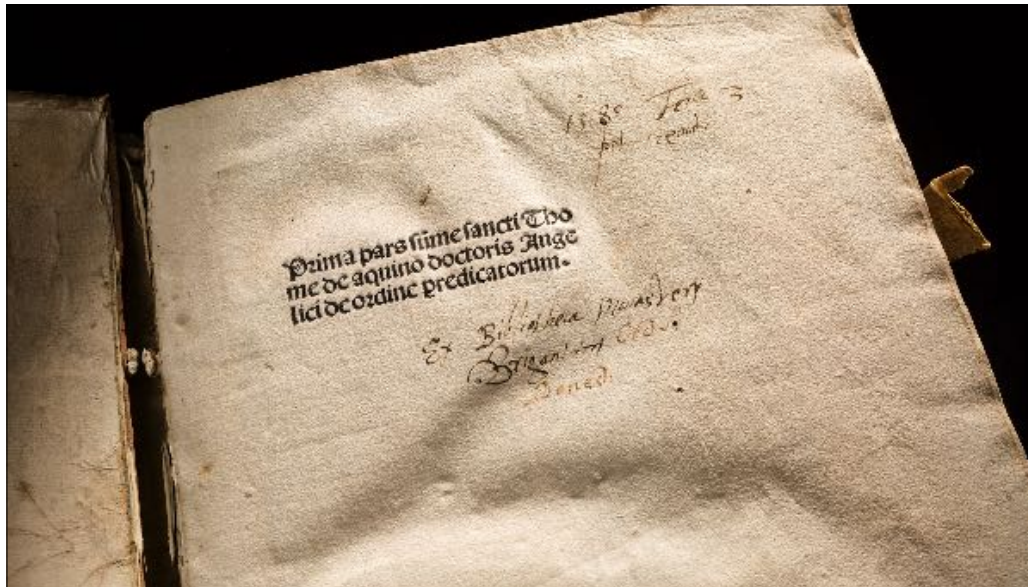 1589 Tom 3
Prima pars sūme sancti Tho
me de aquino doctoris Ange
lici de ordine predicatorum.
Ex Bibliotheca
Ord.
Bened.